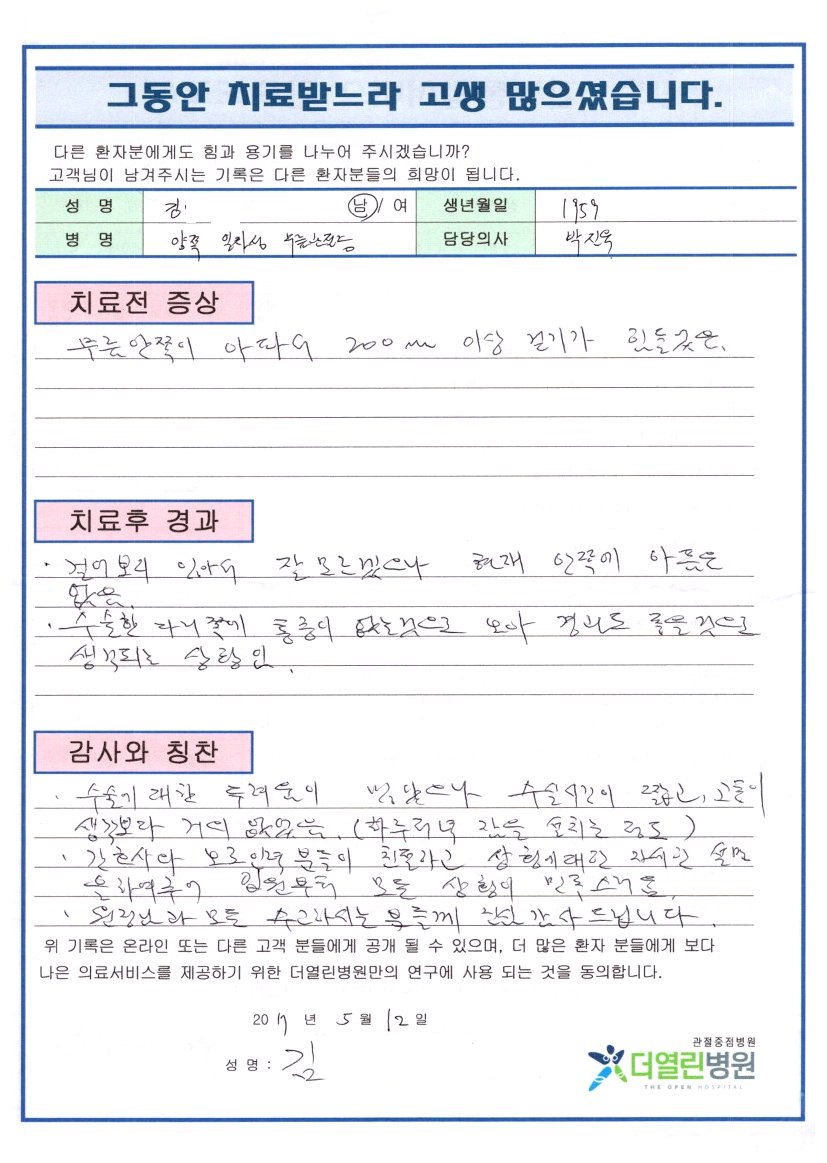 그동안 치료받느라 고생 많으셨습니다.
다른 환자분에게도 힘과 용기를 나누어 주시겠습니까?
고객님이 남겨주시는 기록은 다른 환자분들의 희망이 됩니다.
성 명 김 남 / 여 생년월일 1959
병 명 양쪽 일차성 무릎관절증 담당의사 박진욱
치료전 증상
무릎안쪽이 아파서 200m 이상 걷기가 힘들었음.
치료후 경과
· 걸어보지 않아서 잘 모르겠으나 현재 안쪽에 아픔은
없음.
· 수술한 다리쪽에 통증이 없는것으로 보아 경과도 좋을것으로
생각되는 상황임.
감사와 칭찬
· 수술에 대한 두려움이 있었으나 수술시간이 짧고, 고통이
생각보다 거의 없었음. (하루저녁 잠을 설치는 정도)
· 간호사와 보호인력분들이 친절하고 상황에대한 자세한 설명
을하여주어 입원부터 모든 상황이 만족스러움.
· 원장님과 모든 수고하시는 분들께 감사드립니다.
위 기록은 온라인 또는 다른 고객 분들에게 공개 될 수 있으며, 더 많은 환자 분들에게 보다
나은 의료서비스를 제공하기 위한 더열린병원만의 연구에 사용 되는 것을 동의합니다.
2017 년 5 월 12 일
성 명 : 김
관절중점병원
더열린병원
THE OPEN HOSPITAL